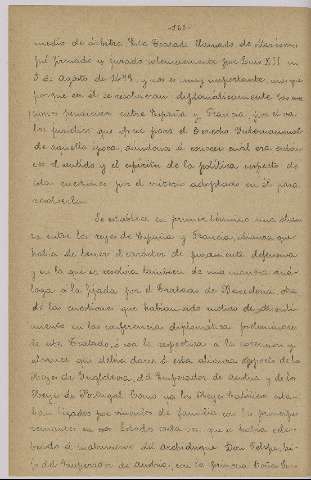 -161-
medio de árbitros. Este Tratado llamado de Marcoussis
fué firmado y jurado solemnemente por Luis XII en
5 de Agosto de 1498, y nos es muy importante, no
porque en él se resolvieran diplomáticamente las
pendientes entre España y Francia, por el va-
lor jurídico que tiene para el Derecho Internacional
de aquella época, ayudando á conocer cual era enton-
ces el sentido y el espíritu de la política respecto de
estas cuestiones por el criterio adoptado en él para
resolverlas.
Se establece en primer término una alian-
za entre los reyes de España y Francia, alianza que
había de tener el carácter de puramente defensiva
y en la que se resolvía también de una manera aná-
loga á la fijada por el Tratado de Barcelona otra
de las cuestiones que habían sido motivo de
miento en las conferencias diplomáticas preliminares
de este Tratado, ó sea la respectiva á la extensión y
alcance que debía darse á esta alianza respecto de los
Reyes de Inglaterra, del Emperador de Austria y de los
Reyes de Portugal. Como ya los Reyes Católicos esta-
ban ligados por vínculos de familia con los príncipes
reinantes en esos Estados toda vez que se había cele-
brado el matrimonio del Archiduque Don Felipe, hi-
jo del Emperador de Austria, con la princesa Doña Jua-